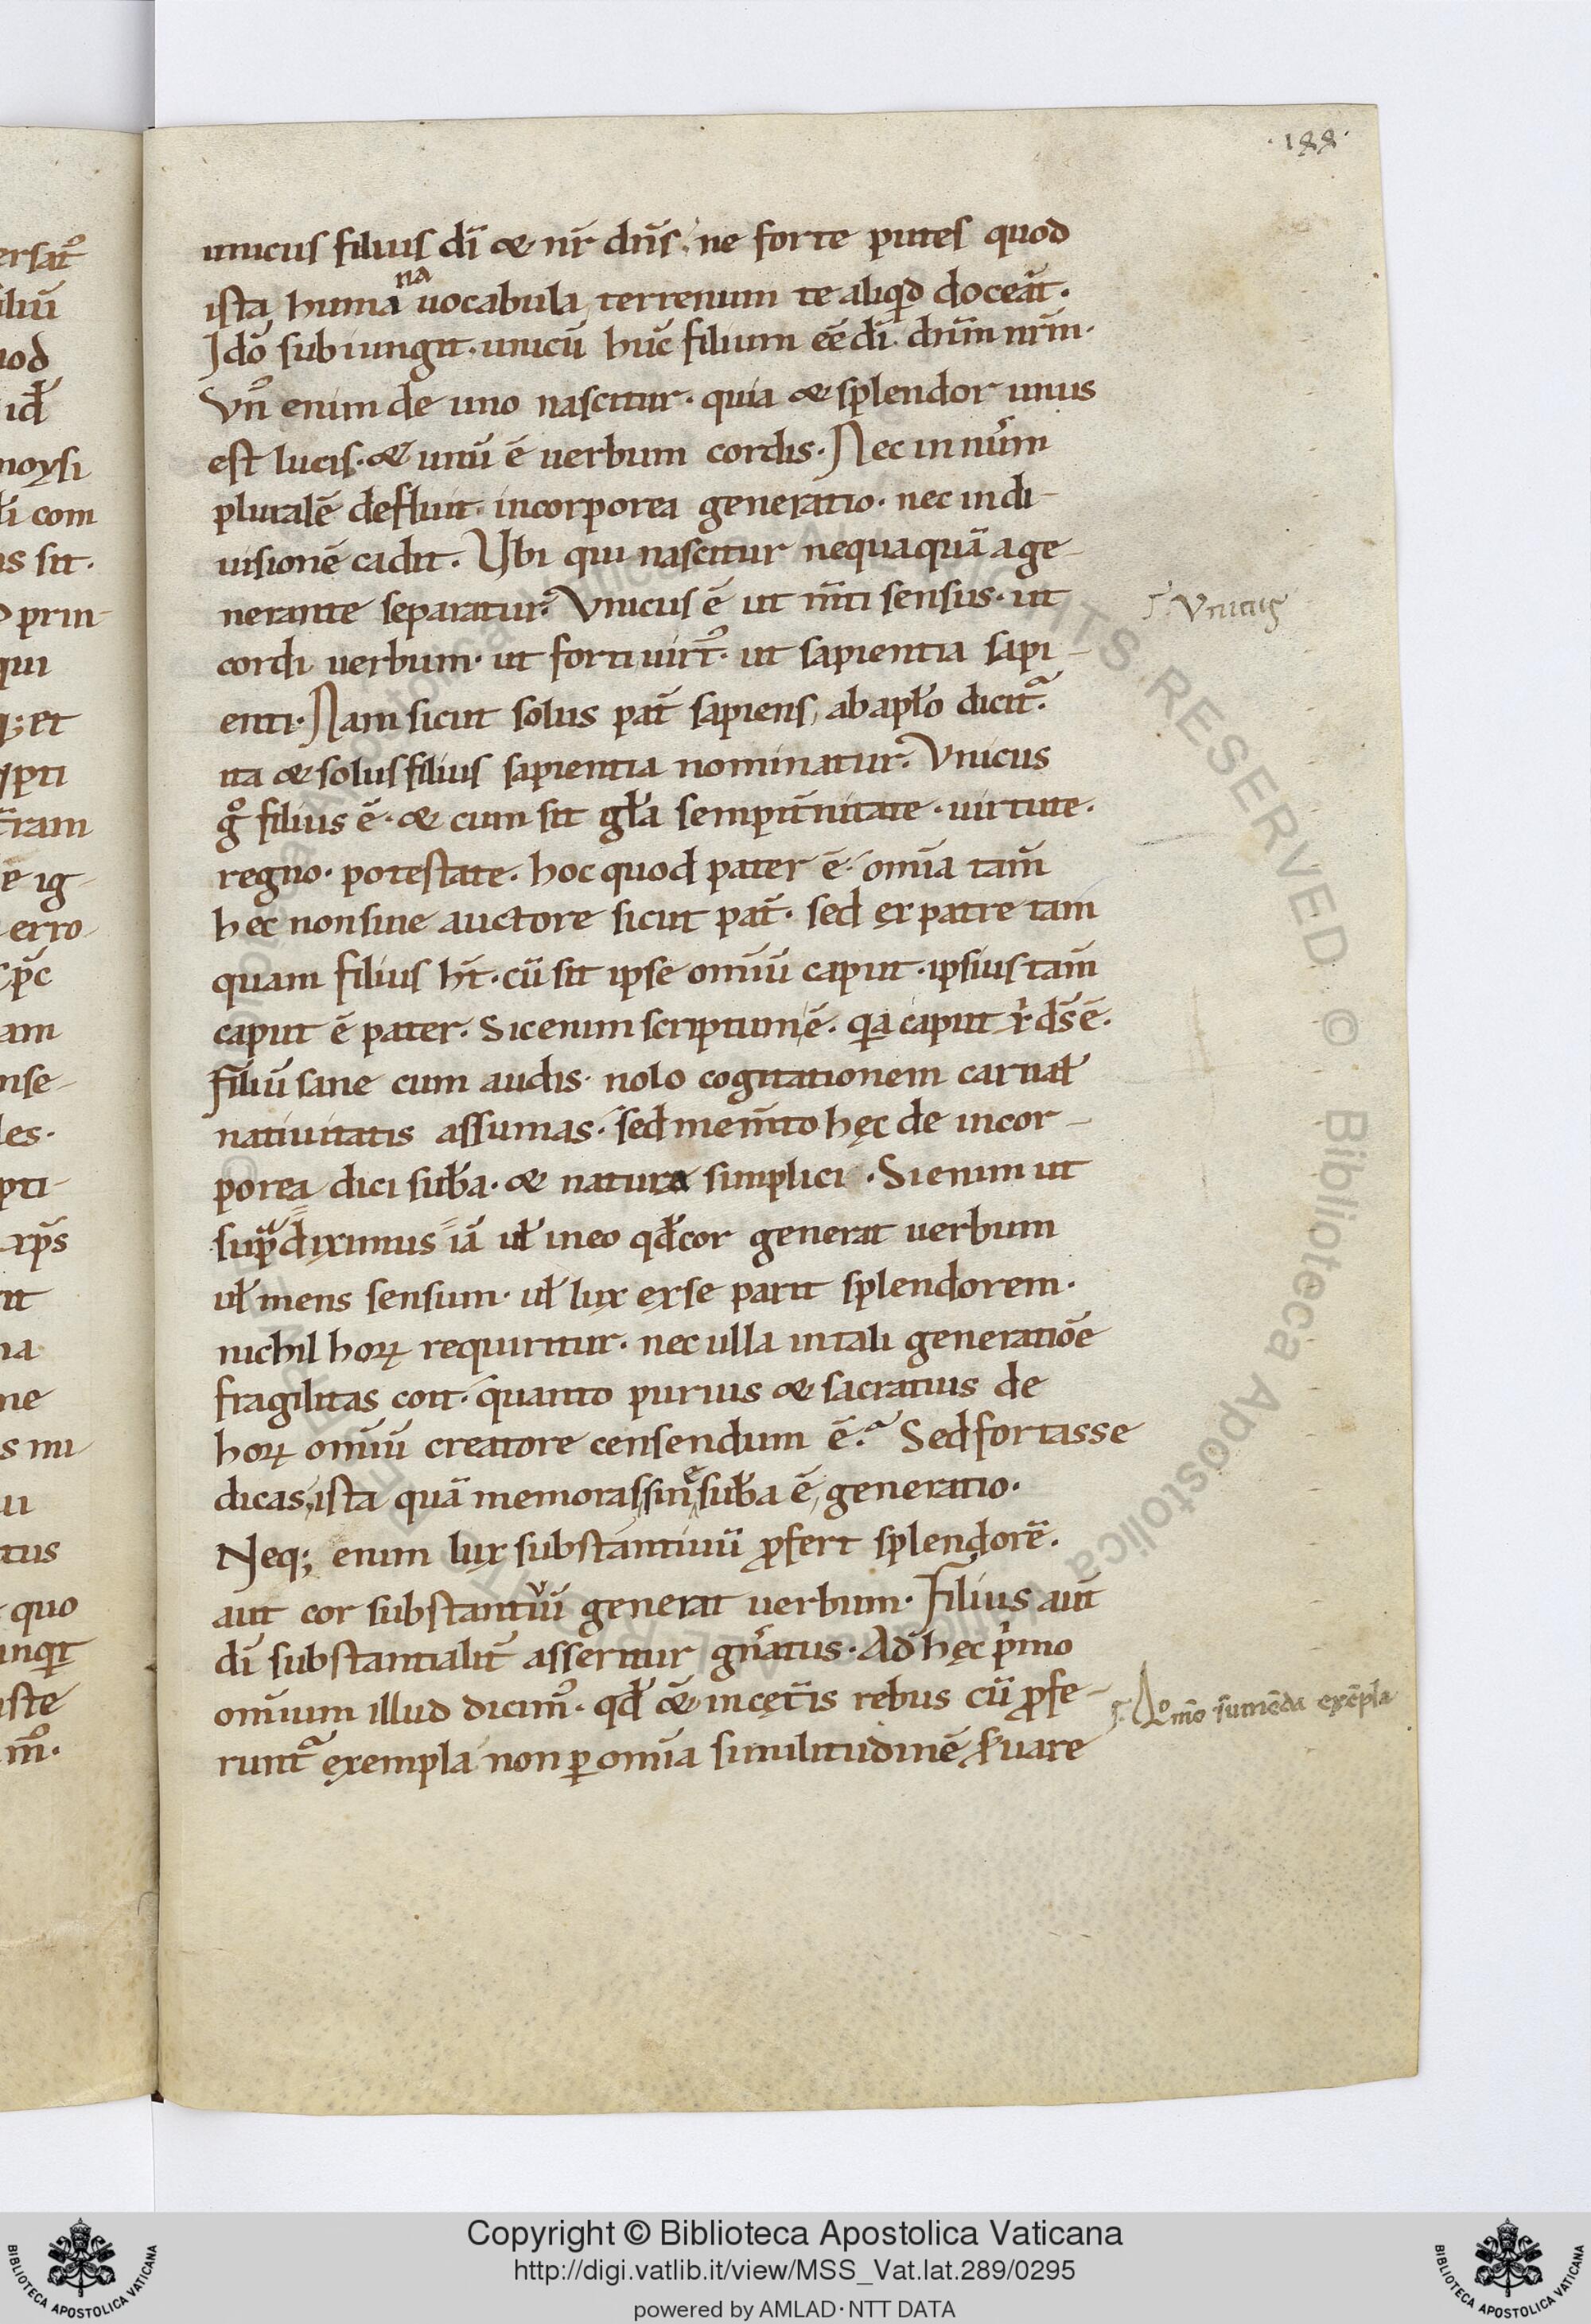 ·188·
unicus filius dī & nr̄ dn̄s. ne forte putes quod
ista huma na uocabula terrenum te aliqd doceāt.
Idō subiungit. unicū hūc filium ēē dī. dn̄m nr̄m.
Vn̉ enim de uno nascitur. quia & splendor unus
est lucis. & unū ē uerbum cordis. Nec in nūm
pluralē defluit incorporea generatio. nec in di-
uisionē cadit. Vbi qui nascitur nequaquā a ge-
nerante separatur. Vnicus ē ut m̄ti sensus. ut
cordi uerbum. ut forti uirt̉. ut sapientia sapi-
enti. Nam sicut solus pat̄ sapiens, ab apło dicit̃.
ita & solus filius sapientia nominatur. Vnicus
gͦ filius ē. & cum sit gła sempit̄nitate. uirtute.
regno. potestate. hoc quod pater ē. om̄ia tam̄
hec non sine auctore sicut pat̄. sed ex patre tam
quam filius ht̄. cū sit ipse om̄iū caput. ipsius tam̄
caput ē pater. Sic enim scriptum ē. qa caput x̄ ds̄ ē.
Filiū sane cum audis. nolo cogitationem carnał
natiuitatis assumas. sed mem̄to hęc de incor-
porea dici sub̄a. & natura simplici. Si enim ut
supᵃ diximus iā uł in eo qđ cor generat uerbum
uł mens sensum. uł lux ex se parit splendorem.
nichil hoꝝ requiritur. nec ulla in tali generatiōe
fragilitas coit. quanto purius & sacratius de
hoꝝ om̄iū creatore censendum ē. Sed fortasse
dicas, ista quā memoras sin e sub̄a ē, generatio.
Neq; enim lux substantiuū ꝓfert splendorē.
aut cor substantiuū generat uerbum. Filius aut̄
dī substantialit̄ asseritur gn̄atus. Ad hęc p̍mo
om̄ium illud dicim̉. qđ & in cęt̄is rebus cū ꝓfe-
runt̃ exempla non ꝑ om̄ia similitudinē s̄uare
Vnicus
sumēda exēpla
Copyright © Biblioteca Apostolica Vaticana
http://digi.vatlib.it/view/MSS_Vat.lat.289/0295
powered by AMLAD·NTT DATA
BIBLIOTECA APOSTOLICA VATICANA
BIBLIOTECA APOSTOLICA VATICANA